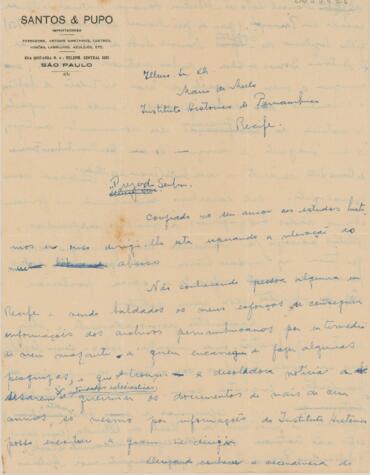 SANTOS & PUPO
IMPORTADORES
FERRAGENS, ARTIGOS SANITARIOS, LUSTRES,
RUA QUITANDA N. 4 - TELEPH. CENTRAL
SÃO PAULO
Illmo Sr. Dr.
Mario de Mello
Instituto Historico de Pernambuco
Recife.
Prezado Senhor.
Confiado no seu amor aos estudos
mos e ouso dirigir-lhe esta esperando a relevação do
meu abuso
Não conhecendo pessoa alguma em
Recife e sendo baldados os meus esforços de conseguir
informações dos archivos pernambucanos por intermedio
de meu a quem encarreguei de fazer algumas
pesquizas, e que trouxe a desoladora noticia de
as autoridades ecclesiasticas queimar os documentos de mais de cem
annos, só mesmo por informações do Instituto Historico
posso encontrar a quem me dirigir.
Desejando conhecer a ascendencia de